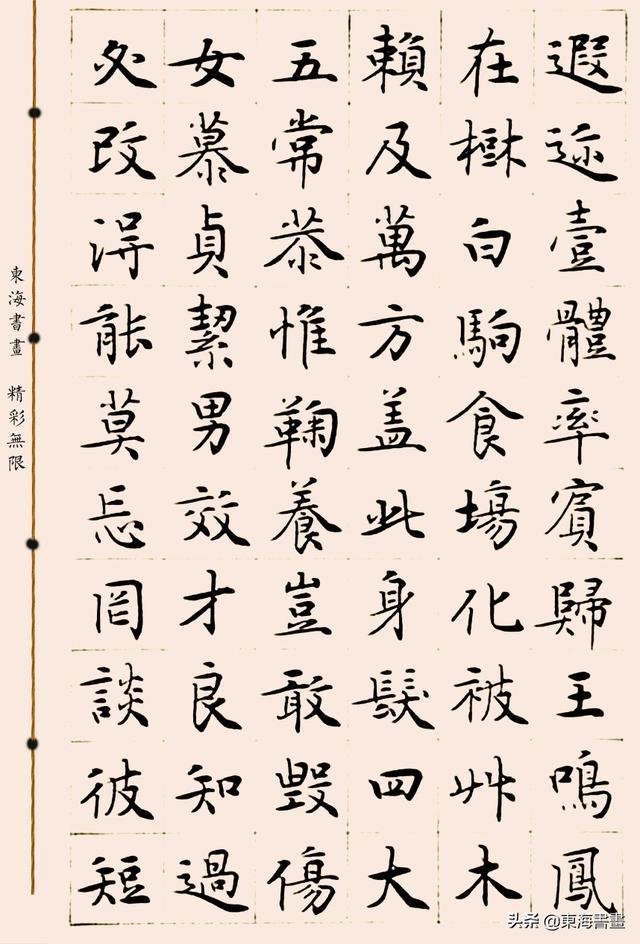 遐迩壹體率賓歸王鳴鳳
在樹白駒食場化被艸木
賴及萬方盖此身髮四大
五常恭惟鞠養豈敢毀傷
女慕貞絜男效才良知過
必改得能莫忘罔談彼短
東海書畫 精彩無限
头条 @東海書畫